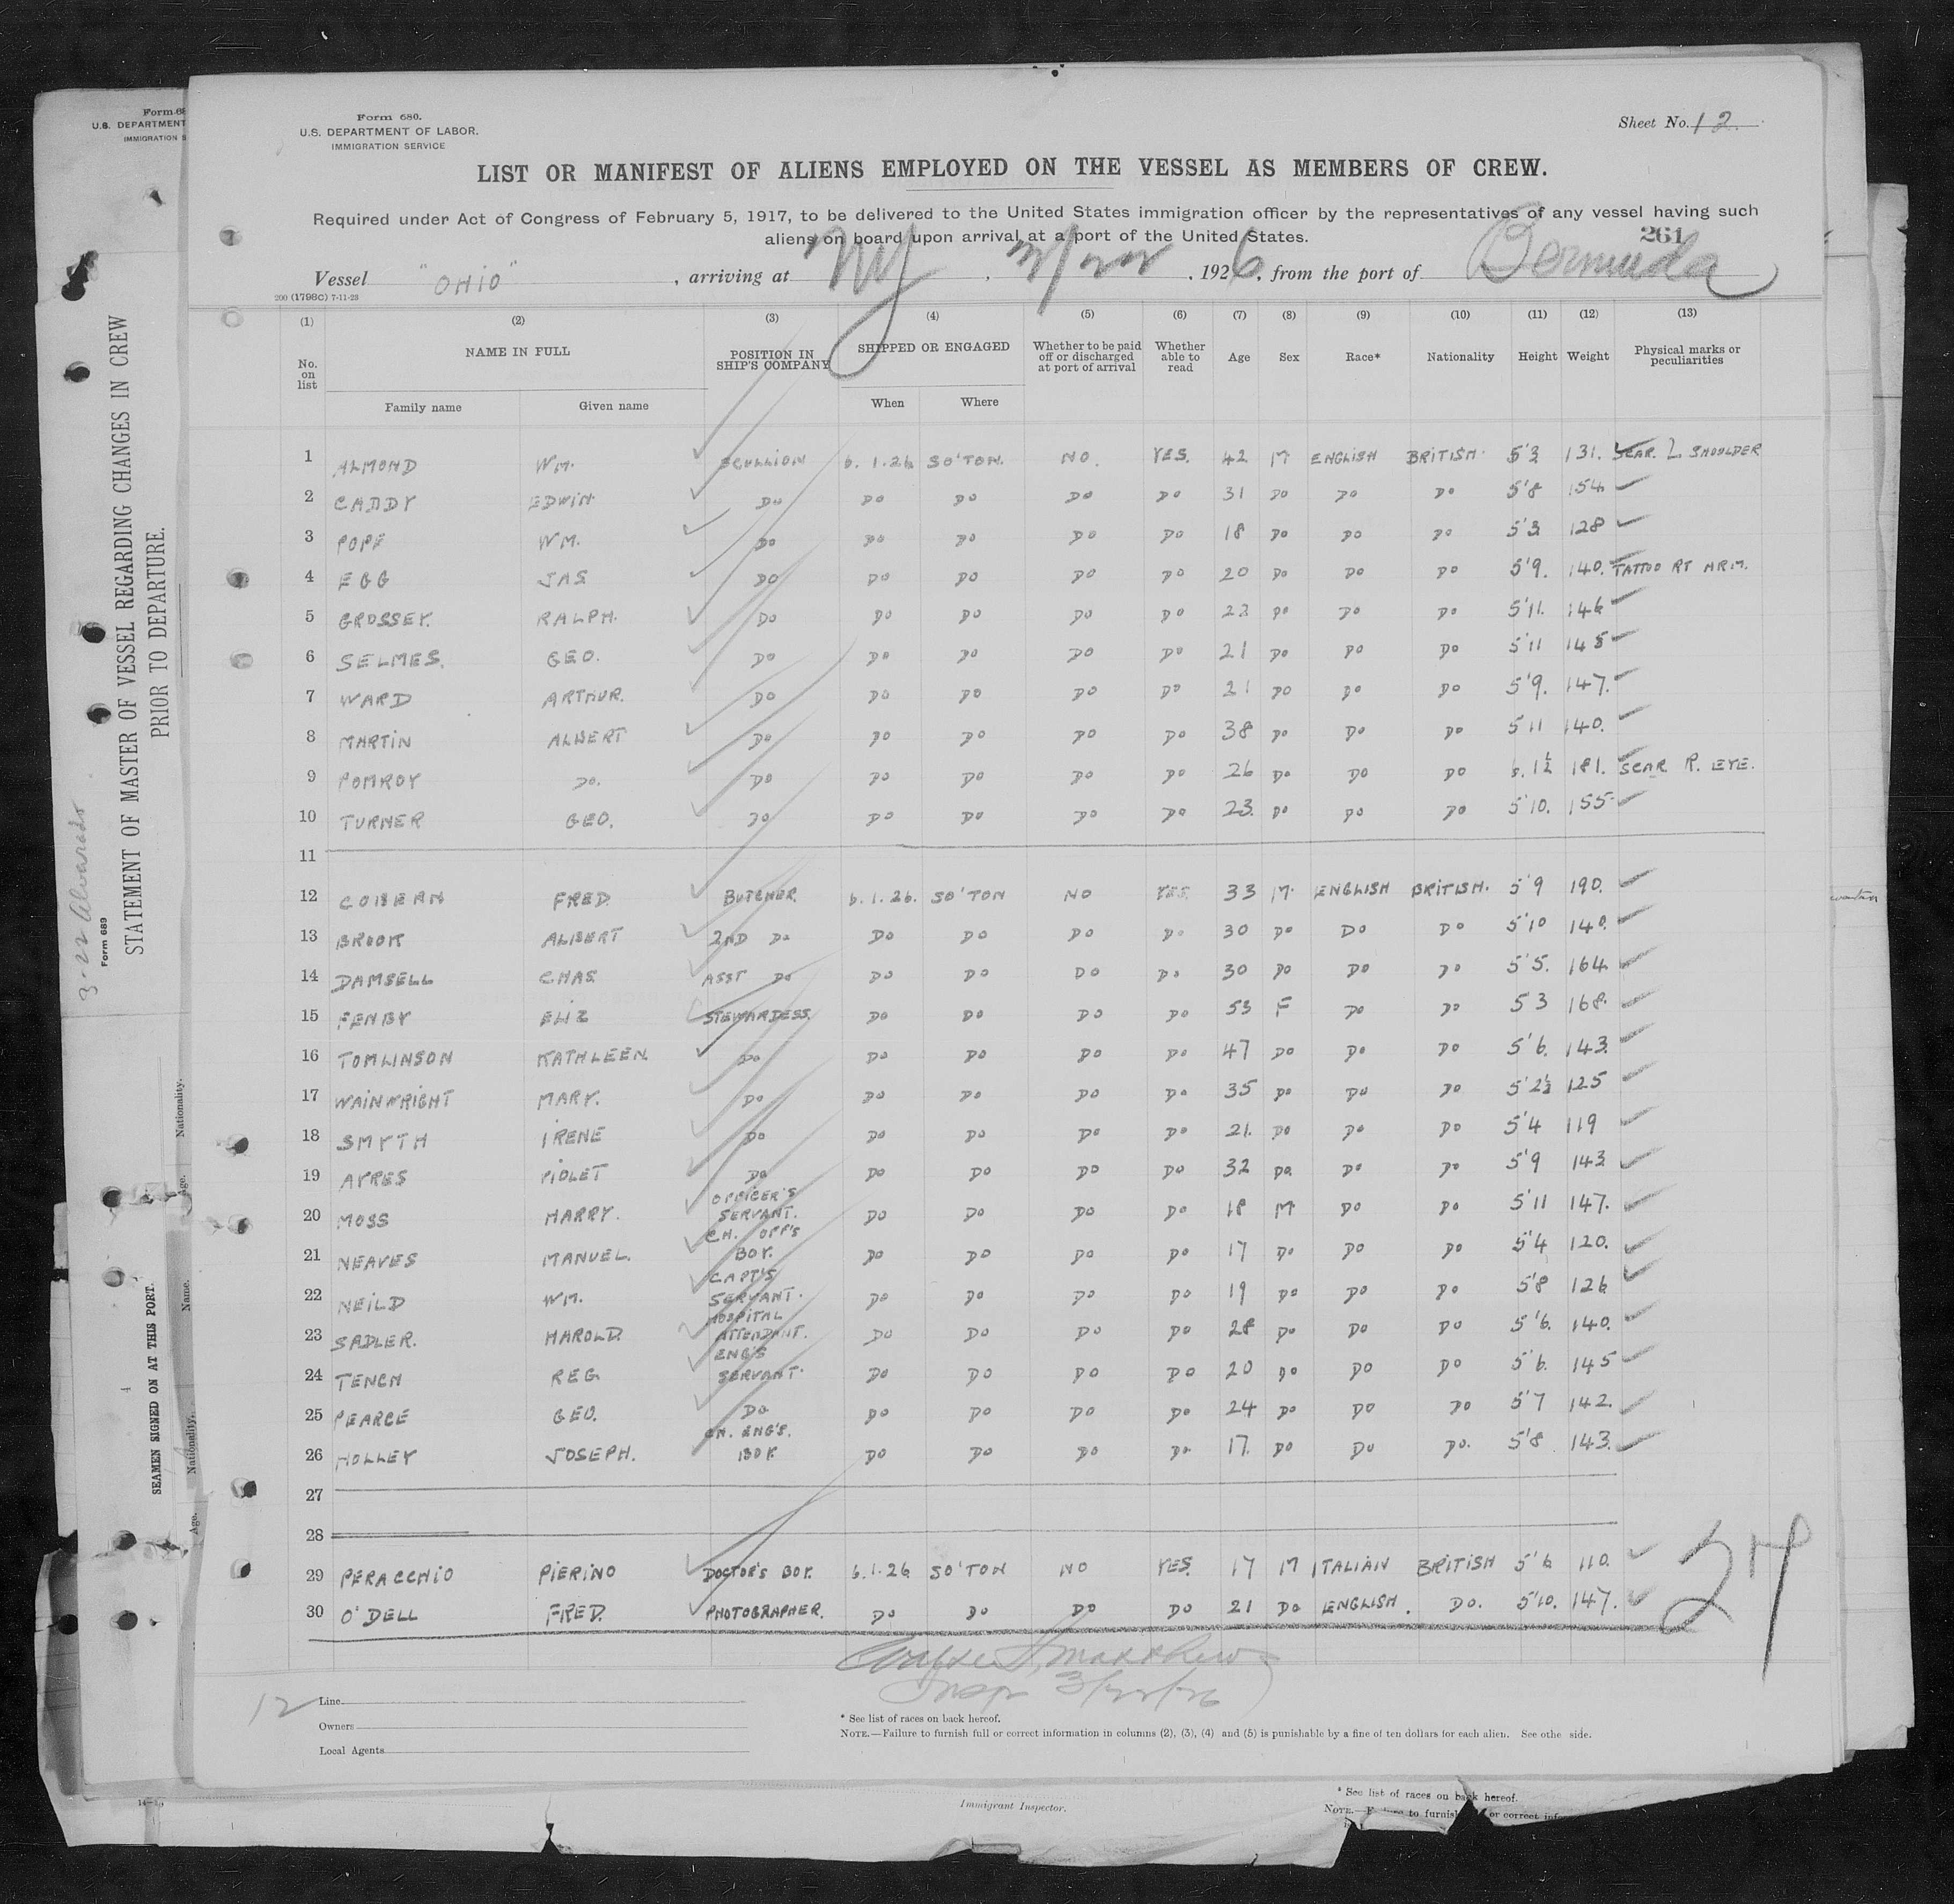 Form 68
U.S. DEPARTMENT
IMMIGRATION S
STATEMENT OF MASTER OF VESSEL REGARDING CHANGES IN CREW
PRIOR TO DEPARTURE.
3-22 Alvarado
Form 689
SEAMEN SIGNED ON AT THIS PORT.
Nationality.
Age.
Name.
Nationality.
Age.
Form 680.
U.S. DEPARTMENT OF LABOR.
IMMIGRATION SERVICE
Sheet No. 12.
LIST OR MANIFEST OF ALIENS EMPLOYED ON THE VESSEL AS MEMBERS OF CREW.
Required under Act of Congress of February 5, 1917, to be delivered to the United States immigration officer by the representatives of any vessel having such
aliens on board upon arrival at a port of the United States.
261
Vessel "OHIO", arriving at NY, 3/22, 1926, from the port of Bermuda
200 (1798C) 7-11-23
(1) (2) (3) (4) (5) (6) (7) (8) (9) (10) (11) (12) (13)
No. on list NAME IN FULL POSITION IN SHIP'S COMPANY SHIPPED OR ENGAGED Whether to be paid off or discharged at port of arrival Whether able to read Age Sex Race* Nationality Height Weight Physical marks or peculiarities
Family name Given name When Where
1 ALMOND WM. SCULLION 6.1.26 SO'TON. NO. YES. 42 M ENGLISH BRITISH. 5'3 131. SCAR. L SHOULDER
2 CADDY EDWIN DO DO DO DO DO 31 DO DO DO 5'8 154
3 POPE WM. DO DO DO DO DO 18 DO DO DO 5'3 128
4 EGG JAS DO DO DO DO DO 20 DO DO DO 5'9. 140. TATTOO RT ARM.
5 GROSSEY. RALPH. DO DO DO DO DO 23 DO DO DO 5'11. 146
6 SELMES. GEO. DO DO DO DO DO 21 DO DO DO 5'11 145
7 WARD ARTHUR. DO DO DO DO DO 21 DO DO DO 5'9. 147.
8 MARTIN ALBERT DO DO DO DO DO 38 DO DO DO 5 11 140.
9 POMROY DO. DO DO DO DO DO 26 DO DO DO 6.1½ 181. SCAR R. EYE.
10 TURNER GEO. DO DO DO DO DO 23. DO DO DO 5'10. 155
11
12 COBERN FRED. BUTCHER. 6.1.26. SO'TON NO YES. 33 M. ENGLISH BRITISH. 5'9 190.
13 BROOK ALBERT 2ND DO DO DO DO DO 30 DO DO DO 5'10 140.
14 DAMSELL CHAS. ASST DO DO DO DO DO 30 DO DO DO 5'5. 164
15 FENBY ELIZ STEWARDESS. DO DO DO DO 53 F DO DO 5 3 168.
16 TOMLINSON KATHLEEN. DO DO DO DO DO 47 DO DO DO 5'6. 143.
17 WAINWRIGHT MARY. DO DO DO DO DO 35 DO DO DO 5'2½ 125
18 SMYTH IRENE DO DO DO DO DO 21. DO DO DO 5'4 119
19 AYRES VIOLET DO DO DO DO DO 32 DO DO DO 5'9 143
20 MOSS HARRY. OFFICER'S SERVANT. DO DO DO DO 18 M. DO DO 5'11 147.
21 NEAVES MANUEL. CH. OFF'S BOY. DO DO DO DO 17 DO DO DO 5'4 120.
22 NEILD WM. CAPT'S SERVANT. DO DO DO DO 19 DO DO DO 5'8 126
23 SADLER. HAROLD. HOSPITAL ATTENDANT. DO DO DO DO 28 DO DO DO 5'6. 140.
24 TENCH REG ENG'S SERVANT. DO DO DO DO 20 DO DO DO 5'6. 145
25 PEARCE GEO. DO DO DO DO DO 24 DO DO DO 5'7 142.
26 HOLLEY JOSEPH. CH. ENG'S. BOY. DO DO DO DO 17. DO DO DO. 5'8 143.
27
28
29 PERACCHIO PIERINO DOCTOR'S BOY. 6.1.26 SO'TON NO YES. 17 M ITALIAN BRITISH 5'6 110.
30 O'DELL FRED. PHOTOGRAPHER. DO DO DO DO 21 DO ENGLISH. DO. 5'10. 147.
27
Walter Matthews
Insp 3/22/26
12
Line
Owners
Local Agents
* See list of races on back hereof.
NOTE.—Failure to furnish full or correct information in columns (2), (3), (4) and (5) is punishable by a fine of ten dollars for each alien. See othe side.
Immigrant Inspector.
* See list of races on back hereof.
NOTE.—F to furnish or correct infor